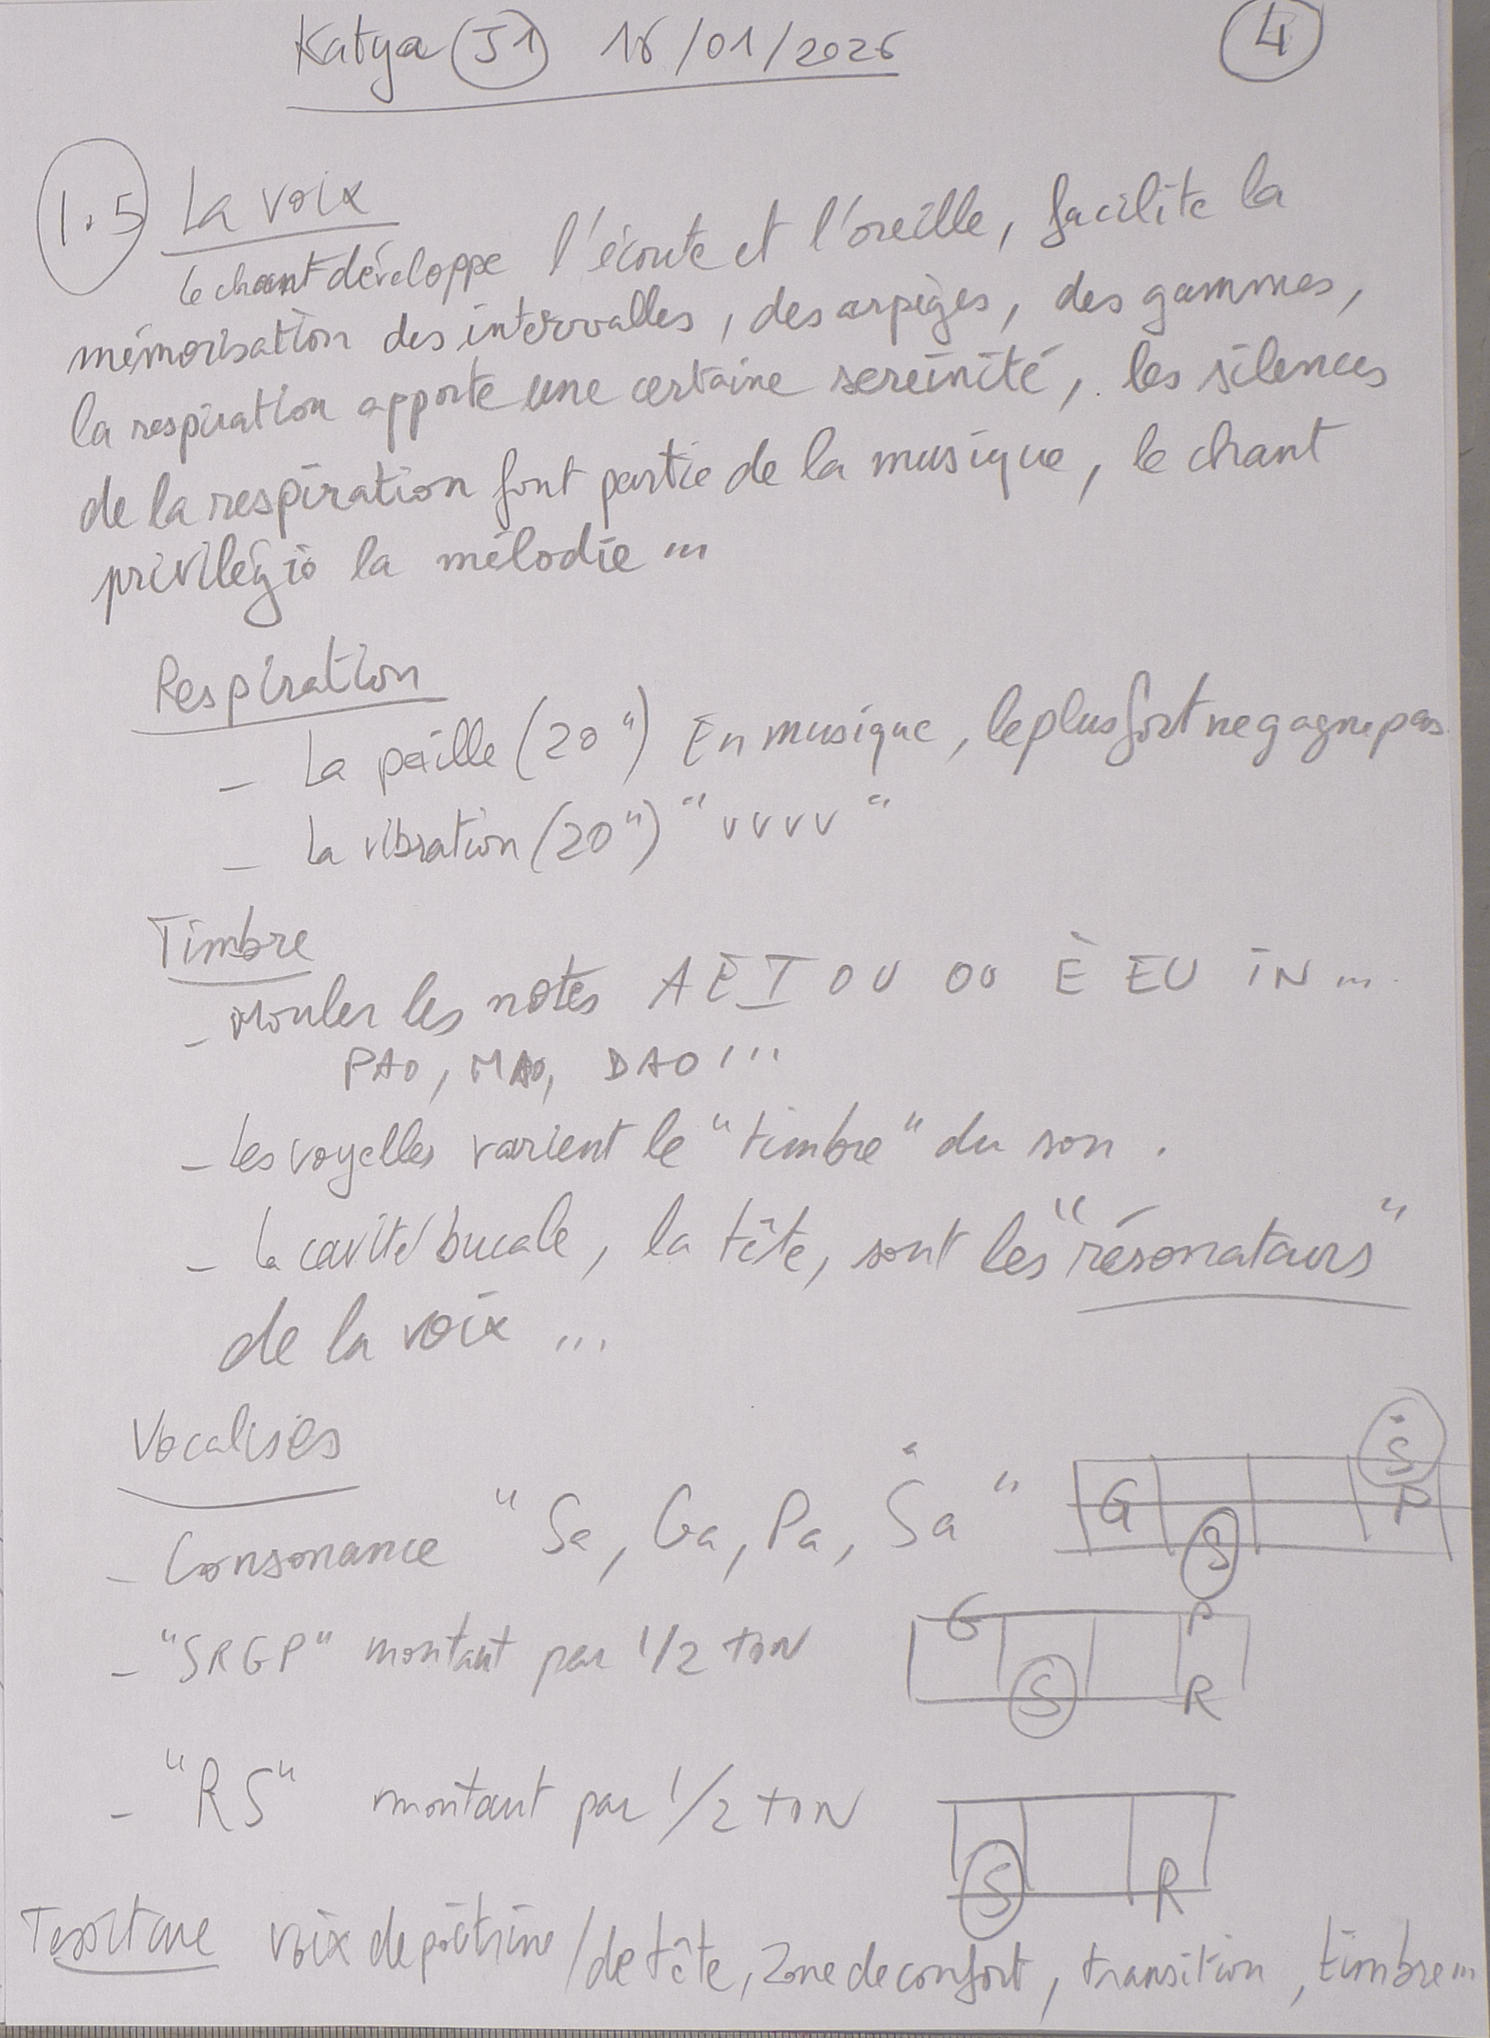 Katya (J1) 16/01/2026 4
1.5 La voix
le chant développe l'écoute et l'oreille, facilite la
mémorisation des intervalles, des arpèges, des gammes,
la respiration apporte une certaine sereinité, les silences
de la respiration font partie de la musique, le chant
la mélodie ...
Respiration
- La paille (20") En musique, le plus fort ne gagne pas.
- La vibration (20") "vvvv"
Timbre
- les notes A E I O U OU È EU IN ...
PAO, MAO, DAO ...
- Les voyelles varient le "timbre" du son.
- la cavité bucale, la tête, sont les "résonateurs"
de la voix ...
Vocalises
- Consonance "Sa, Ga, Pa, Ṡa" G S P Ṡ
- "SRGP" montant par 1/2 TON G P S R
- "RS" montant par 1/2 TON S R
Tessiture voix de poitrine / de tête, zone de confort, transition, timbre ...